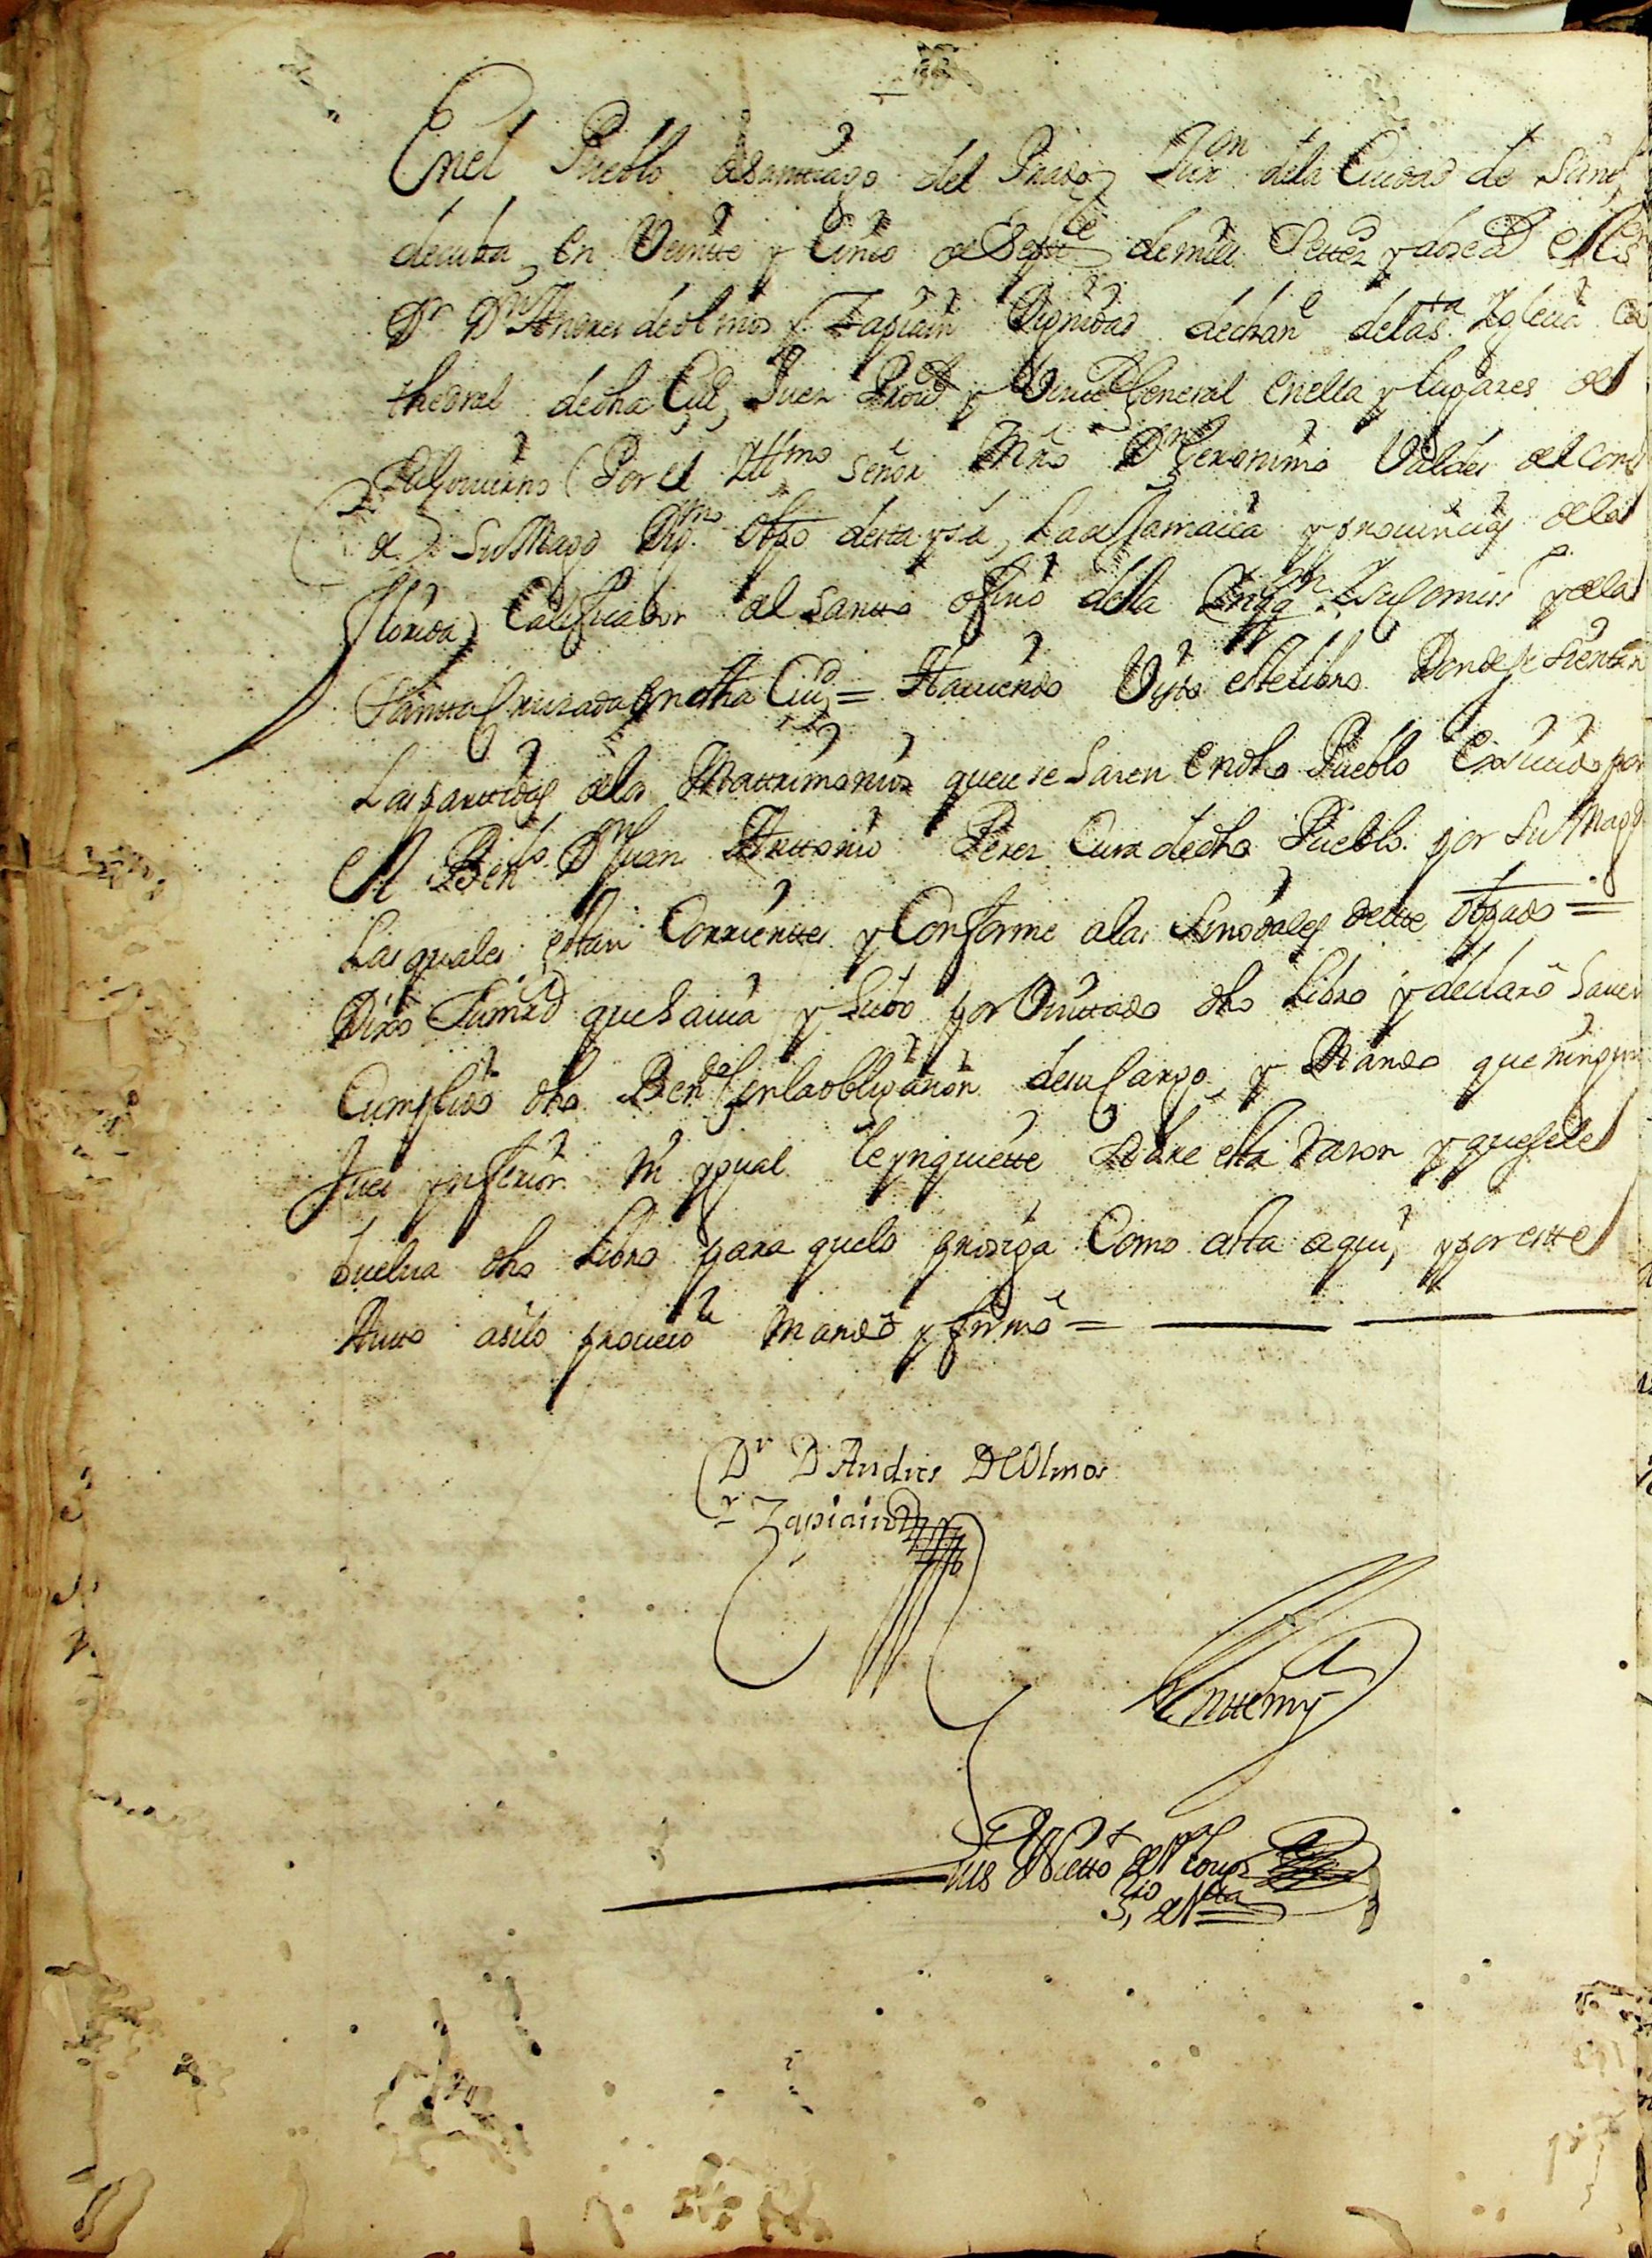 Enel Pueblo de Santiago del Prado Juron dela Ciudad de Sant
decuba en Veinte y Cinco de Septte demill Settez y dose as el s
Dr Dn Andres de olmos y Zapiain Dignidad dechan delasta Yglecia Ca
thedral dedha Ciud, Juez Prov y Vicc General enella y lugares de
su Govierno Por el Illmo señor Mro Dn Geronimo Valdes del cons
de Su Magd Digmo obpo desta ysla, La de Jamaica y provincias dela
florida, Calificador del Santto ofisio dela Ynqqn Su Comiss y dela
Santta Cruzada en dha Ciud = Haviendo Visto este libro Donde se sientan
Las partidas delos Mattrimonios que se hasen en dho Pueblo Exsivido por
el Bendo Dn Juan Anttonio Perez Cura dedho Pueblo por su Magd
Las quales estan Corrienttes y Conforme a las Sinodales deste obpado =
Dixo Sumrd que havia y hubo por Vicittado dho Libro y declaro haver
Cumplido dho Bendo en la obligasion desu Cargo, y Mando que ningun
Jues ynferior ni ygual le ynquiette sobre esta rason y que sele
buelva dho Libro para quelo prosiga Como asta aqui, y por estte
Autto asilo proveio mando y firmo =
Dr D Andres De Olmos
y Zapiain
Antte my
Luis Nietto de